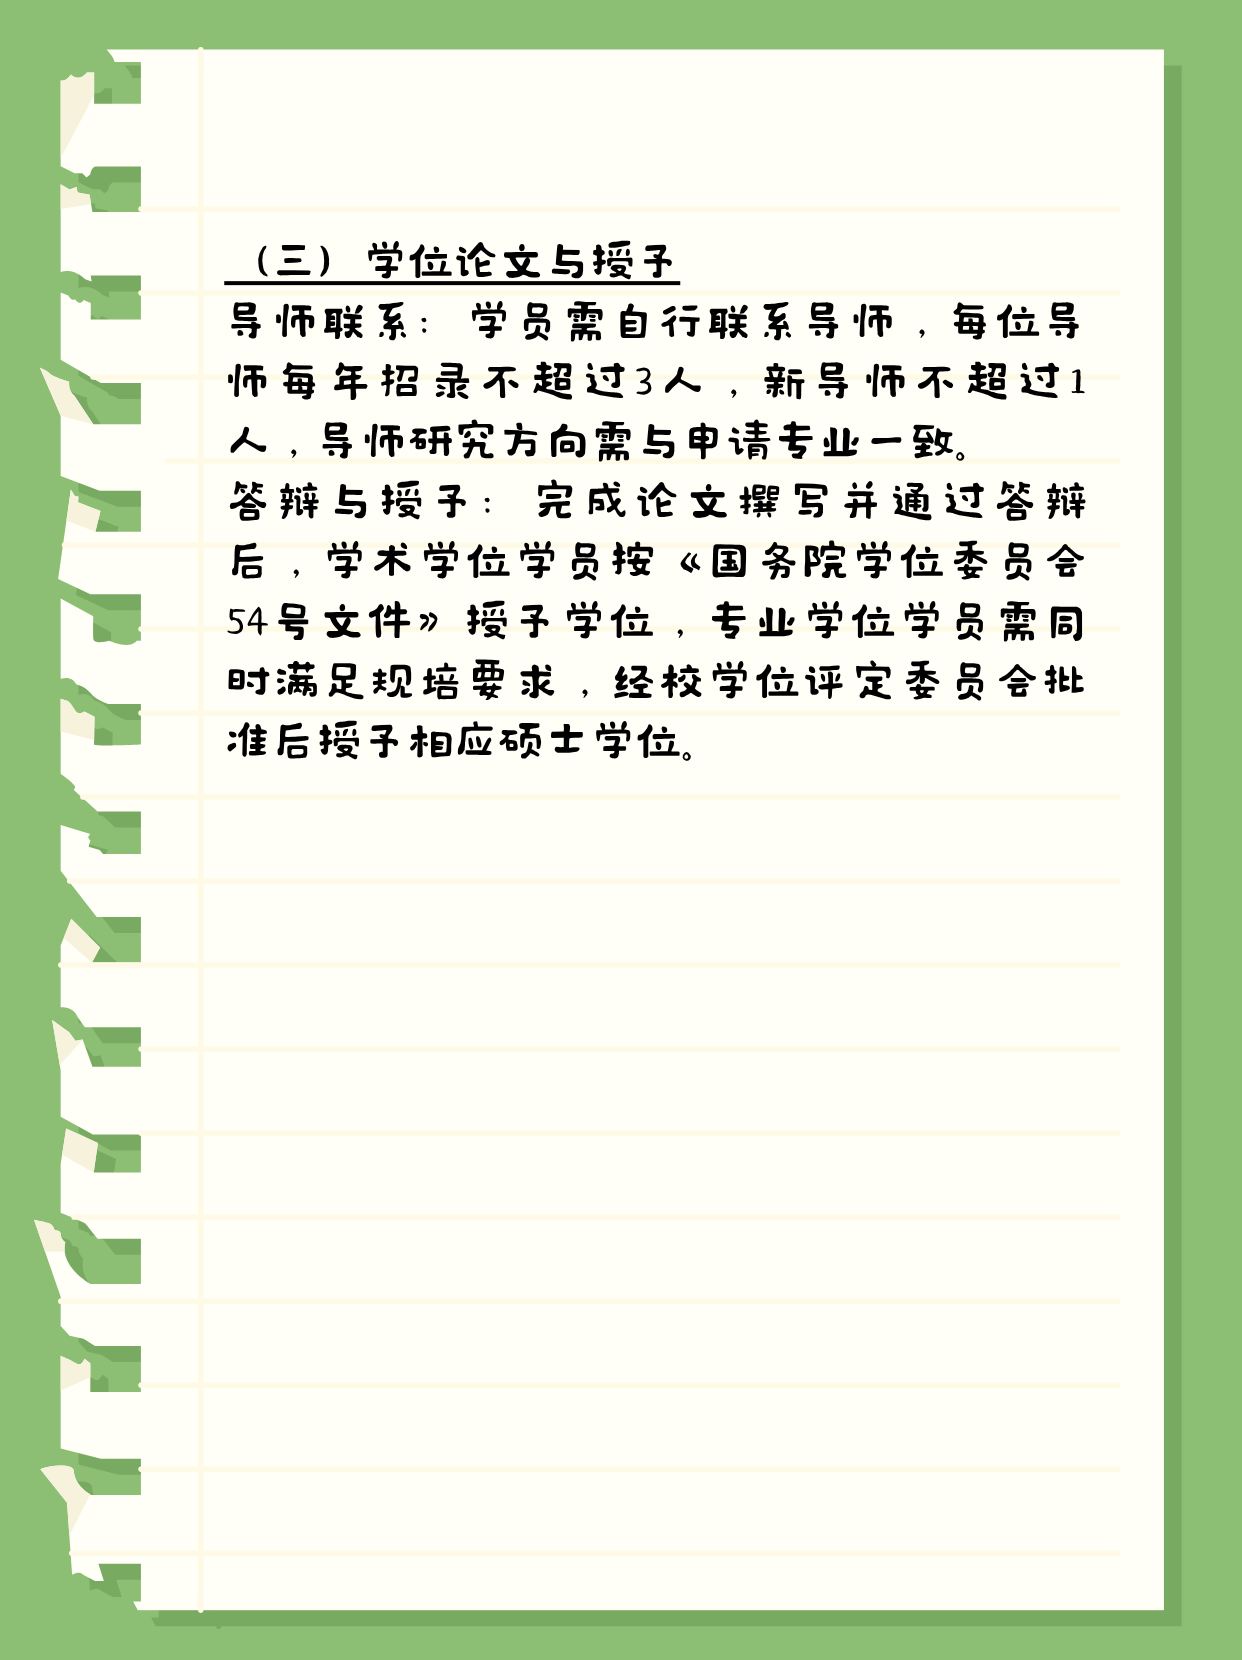 （三） 学位论文与授予
导师联系： 学员需自行联系导师，每位导
师每年招录不超过3人，新导师不超过1
人，导师研究方向需与申请专业一致。
答辩与授予： 完成论文撰写并通过答辩
后，学术学位学员按《国务院学位委员会
54号文件》授予学位，专业学位学员需同
时满足规培要求，经校学位评定委员会批
准后授予相应硕士学位。